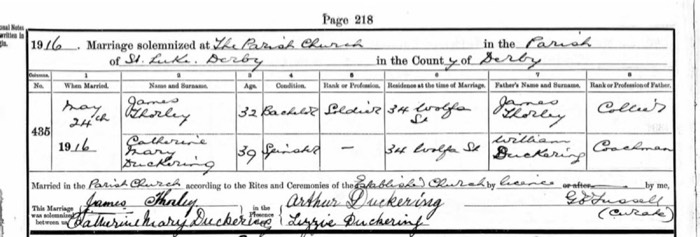 Page 218
1916. Marriage solemnized at The Parish Church in the Parish
of St. Luke. Derby in the County of Derby
Columns. 1 2 3 4 5 6 7 8
No. When Married. Name and Surname. Age. Condition. Rank or Profession. Residence at the time of Marriage. Father's Name and Surname. Rank or Profession of Father.
435 May 24th 1916 James Thorley 32 Bachelor Soldier 34 Wolfa St James Thorley Collier
Catherine Mary Duckering 39 Spinster — 34 Wolfa St William Duckering Coachman
Married in the Parish Church according to the Rites and Ceremonies of the Established Church by licence or after by me,
This Marriage was solemnized between us James Thorley Catherine Mary Duckering in the Presence of us Arthur Duckering Lizzie Duckering (Curate)